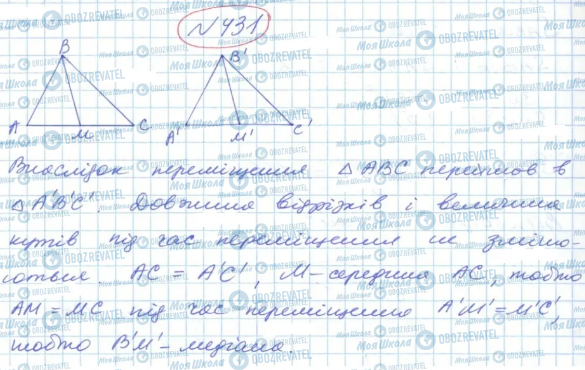 № 431
B B'
A M C A' M' C'
Внаслідок переміщення △ ABC перейшов в
△ A'B'C'. Довжина відрізків і величина
кутів під час переміщення не зміню-
ються. AC = A'C', M - середина AC, тобто
AM = MC під час переміщення A'M' = M'C',
тобто B'M' - медіана.